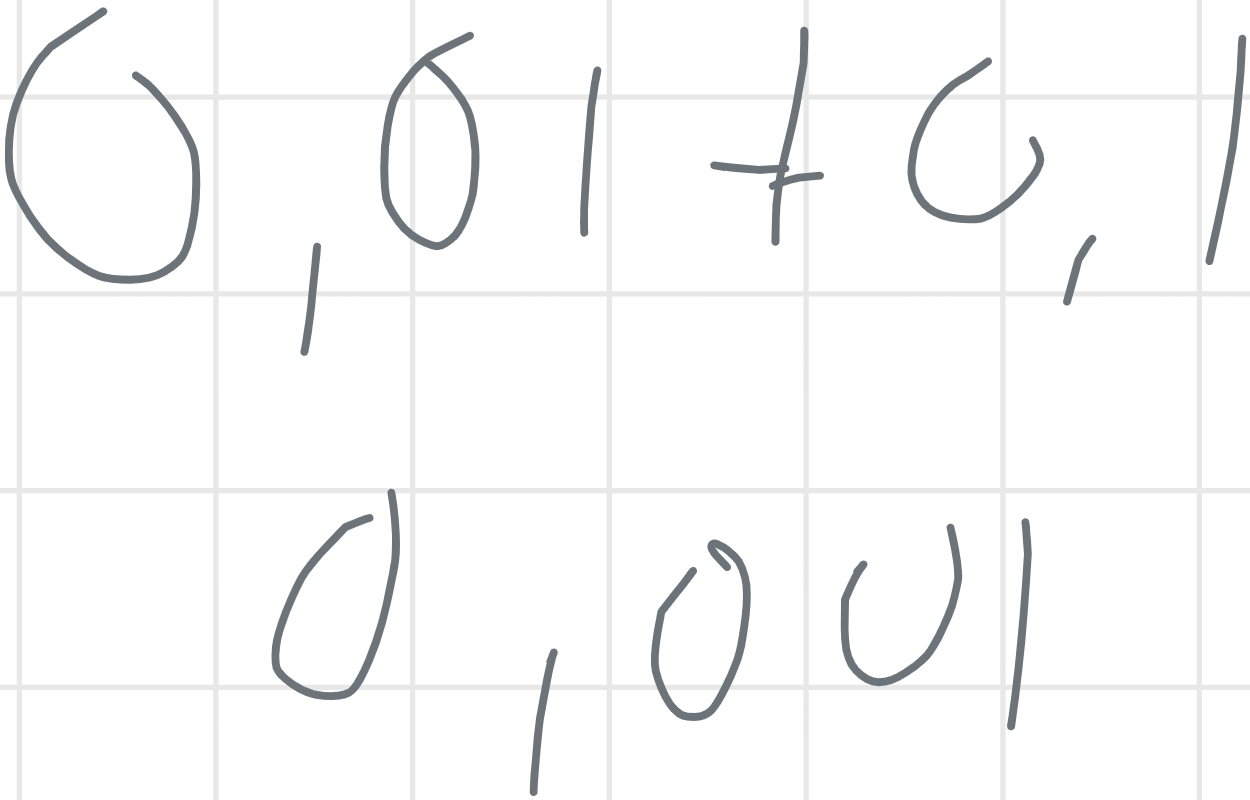 0,01+0,1
0,001